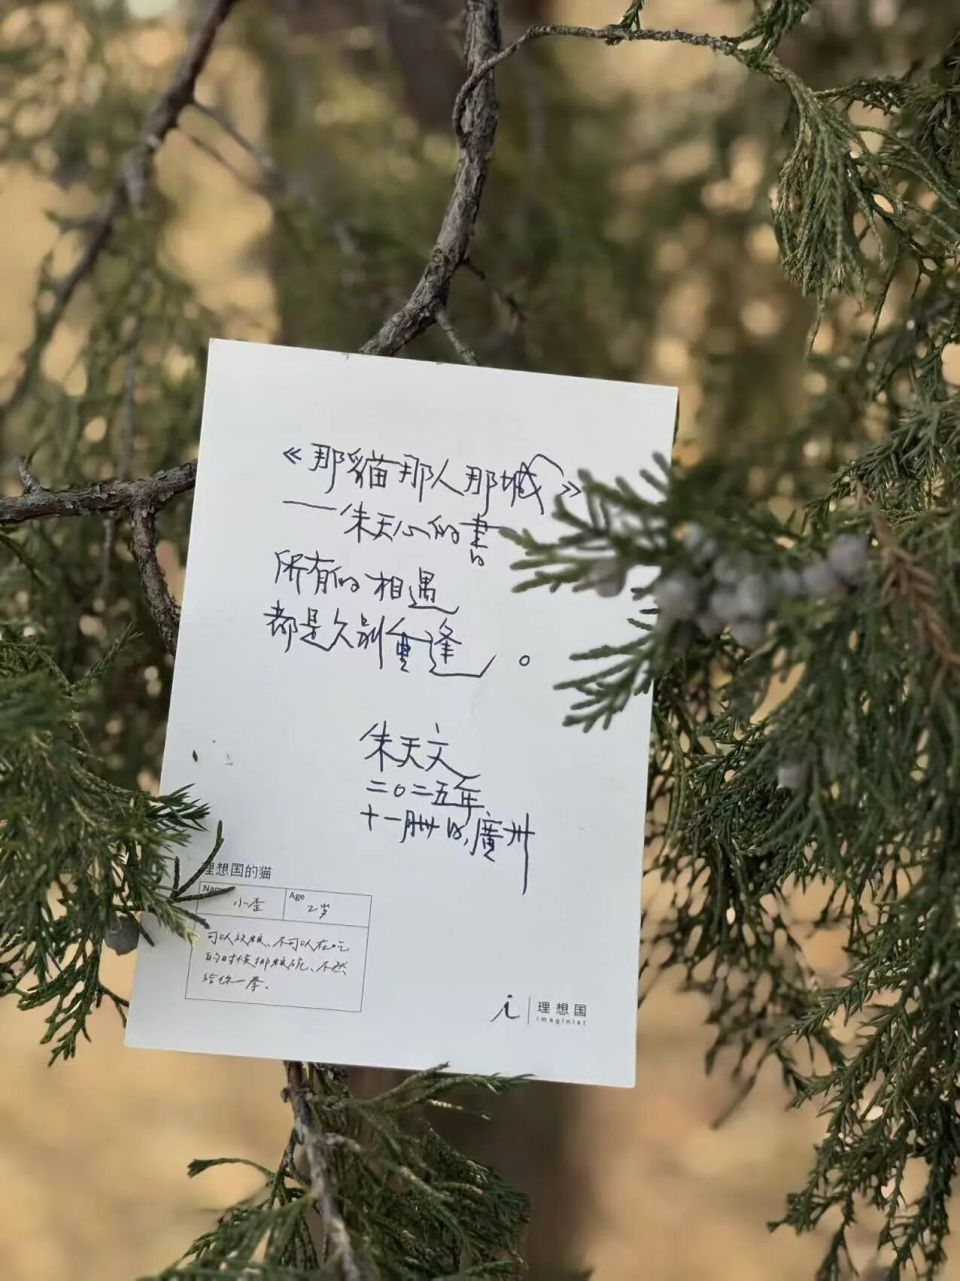 《那貓那人那城》
——朱天心的書
所有的相遇
都是久別重逢。
朱天文
二〇二五年
十一月卅日,廣州
理想国的猫
Name 小歪 Age 2岁
可以放粮、不可以在吃
的时候挪粮碗、不然
给你一拳。
i 理想国
imaginist